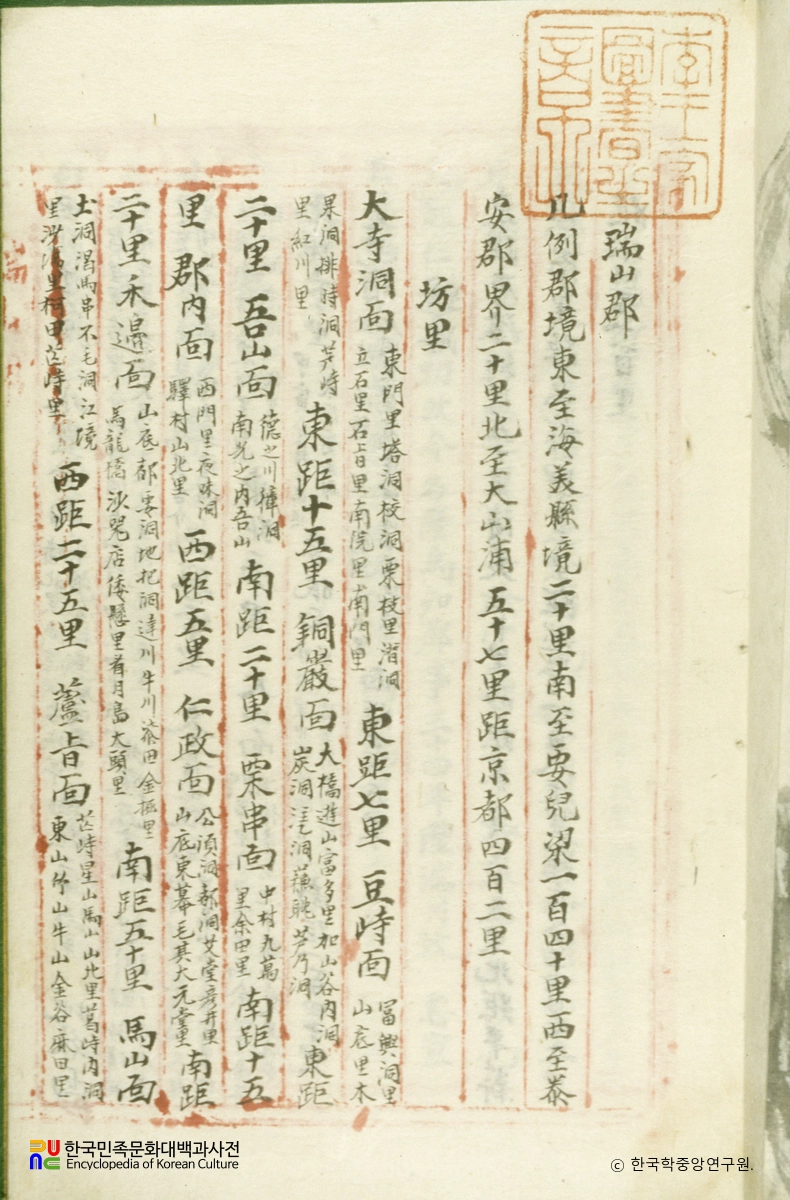 瑞山郡
凡例郡境東至海美縣境二十里南至要兒梁一百四十里西至泰
安郡界二十里北至大山浦五十七里距京都四百二里
坊里
大寺洞面 東門里塔洞校洞栗枝里潛洞 立石里石旨里南院里南門里 東距七里 豆峙面 冨興洞里 山底里木
果洞排時洞芦峙 里紅川里 東距十五里 銅巖面 大橋進山富多里加山谷內洞 炭洞 洞 芦乃洞 東距
二十里 吾山面 德之川獐洞 南光之內吾山 南距二十里 栗串面 中村九萬 里余田里 南距十五
里 郡內面 西門里夜味洞 驛村山北里 西距五里 仁政面 公須洞 洞艾堂彦井里 山底東幕毛其大元堂里 南距
二十里 禾邊面 山底都要洞地把洞達川牛川 田金振里 馬龍橋沙器店倭懸里看月島大頭里 南距五十里 馬山面
土洞渴馬串不毛洞江境 里 里 田芒峙里 西距二十五里 蘆旨面 芒峙星山馬山山北里葛峙內洞 東山竹山牛山金谷麻田里
한국민족문화대백과사전
Encyclopedia of Korean Culture
ⓒ 한국학중앙연구원.